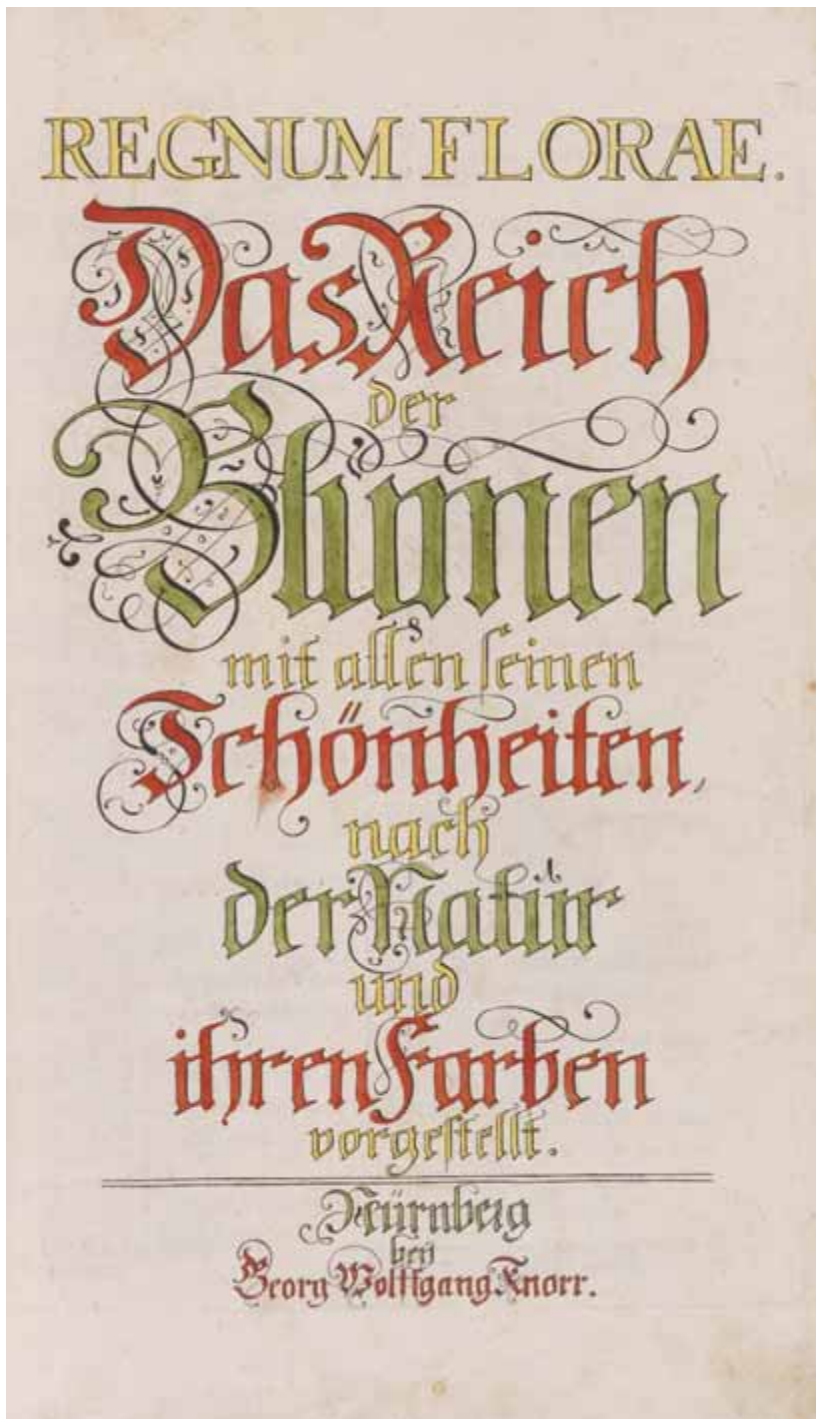 REGNUM FLORAE.
Das Reich
der
Blumen
mit allen seinen
Schönheiten,
nach
der Natur
und
ihren Farben
vorgestellt.
Nürnberg
bey
Georg Wolffgang Knorr.